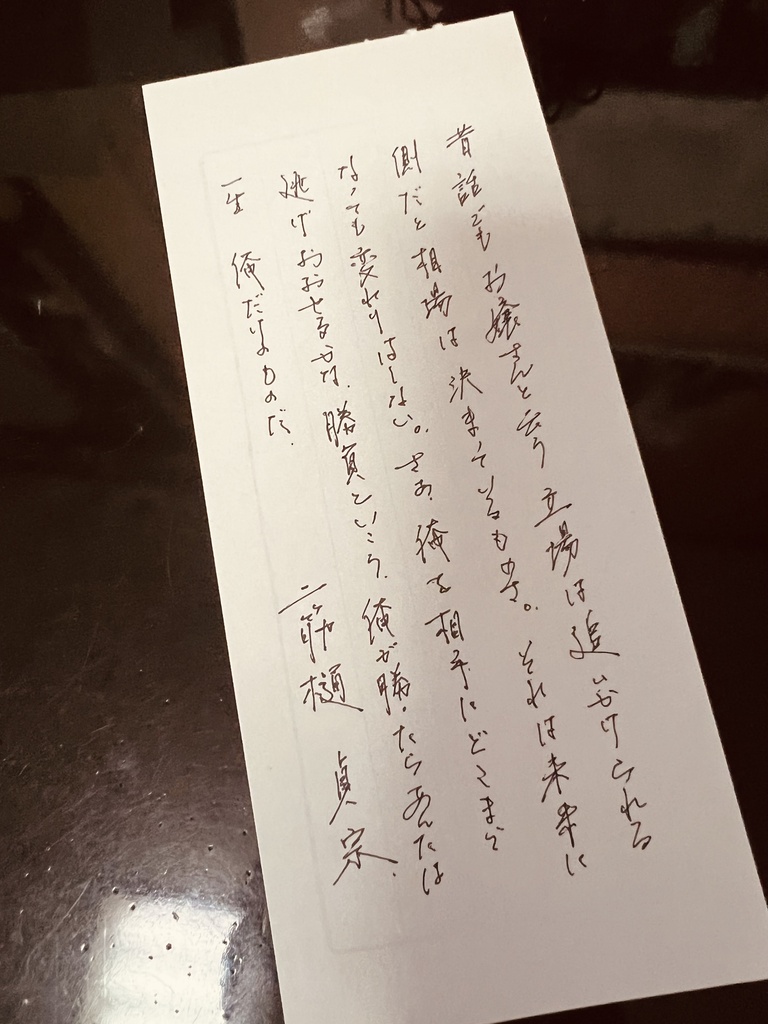 昔話でもお嬢さんと云う立場は追いかけられる
側だと相場は決まっているものさ。それは未来に
なっても変わりはしない。さあ、俺を相手にどこまで
逃げおおせるかな、勝負といこう。俺が勝ったらあんたは
一生俺だけのものだ。
二筋樋 貞宗